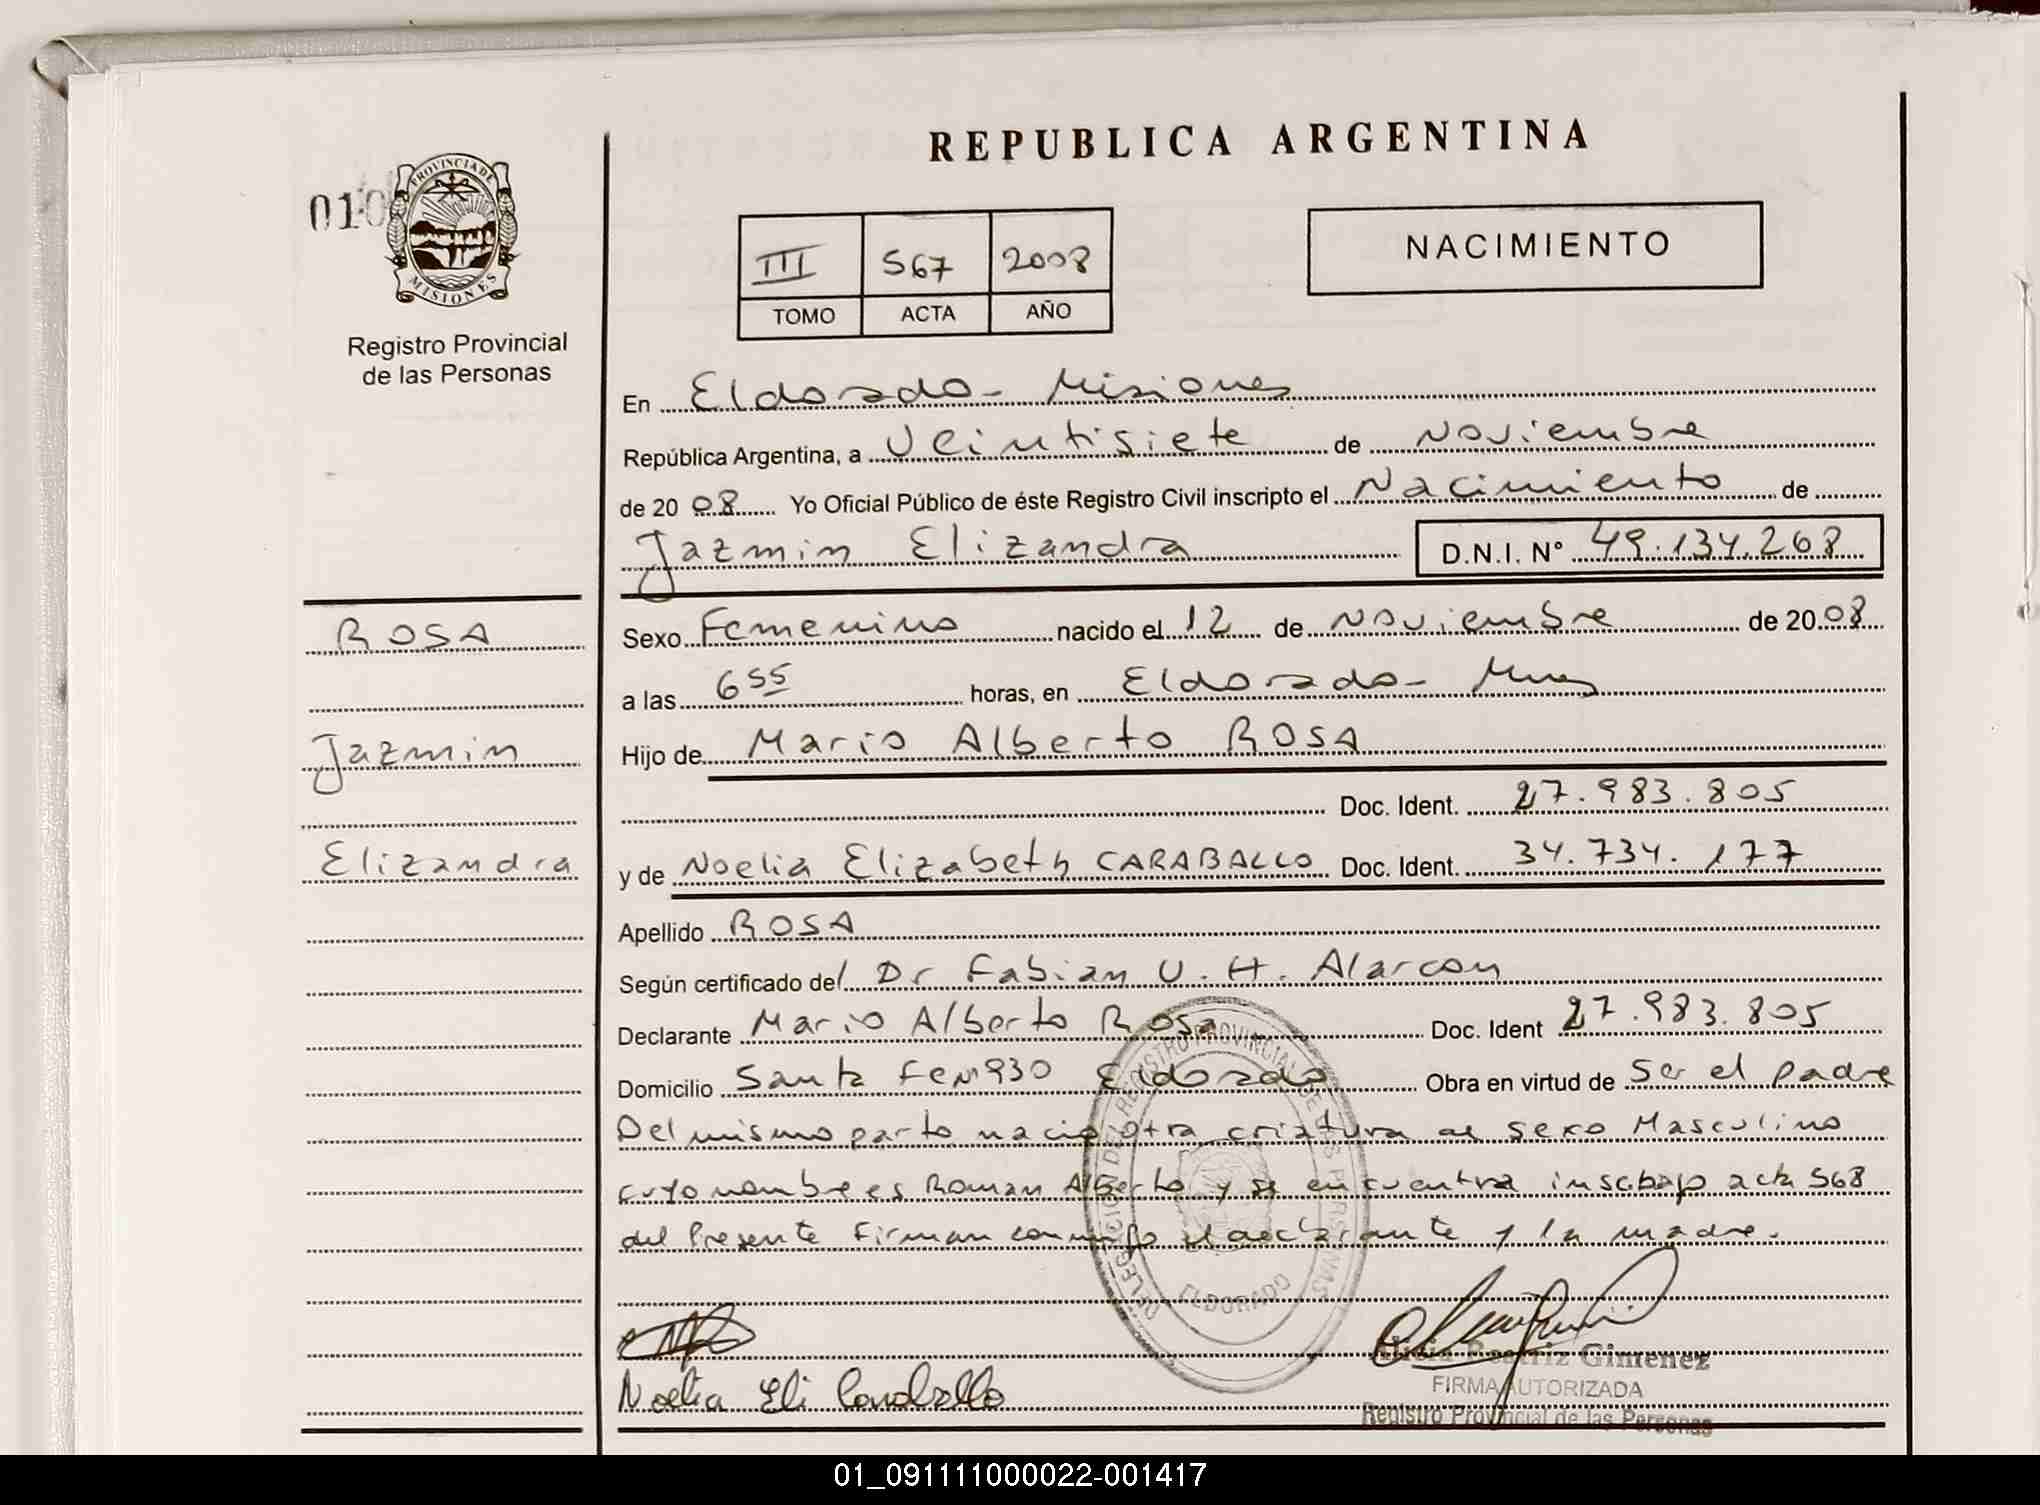 REPUBLICA ARGENTINA
010
PROVINCIA DE
MISIONES
Registro Provincial
de las Personas
III 567 2008
TOMO ACTA AÑO
NACIMIENTO
En Eldorado - Misiones
República Argentina, a Veintisiete de Noviembre
de 2008 Yo Oficial Público de éste Registro Civil inscripto el Nacimiento de
Jazmin Elizandra D.N.I. Nº 49.134.268
ROSA
Jazmin
Elizandra
Sexo Femenino nacido el 12 de Noviembre de 2008
a las 6 55 horas, en Eldorado - Mnes
Hijo de Mario Alberto ROSA
Doc. Ident. 27.983.805
y de Noelia Elizabeth CARABALLO Doc. Ident. 34.734.177
Apellido ROSA
Según certificado del Dr Fabian U. H. Alarcon
Declarante Mario Alberto Rosa Doc. Ident 27.983.805
Domicilio Santa Fe Nº 930 Eldorado Obra en virtud de Ser el padre
Del mismo parto nacio otra criatura de sexo Masculino
cuyo nombre es Roman Alberto y se encuentra insc. bajo acta 568
del Presente Firman conmigo el declarante y la madre.
DELEGACION DEL REGISTRO PROVINCIAL DE LAS PERSONAS
ELDORADO
Noelia Eli Caraballo
Alicia Beatriz Gimenez
FIRMA AUTORIZADA
Registro Provincial de las Personas
01_091111000022-001417